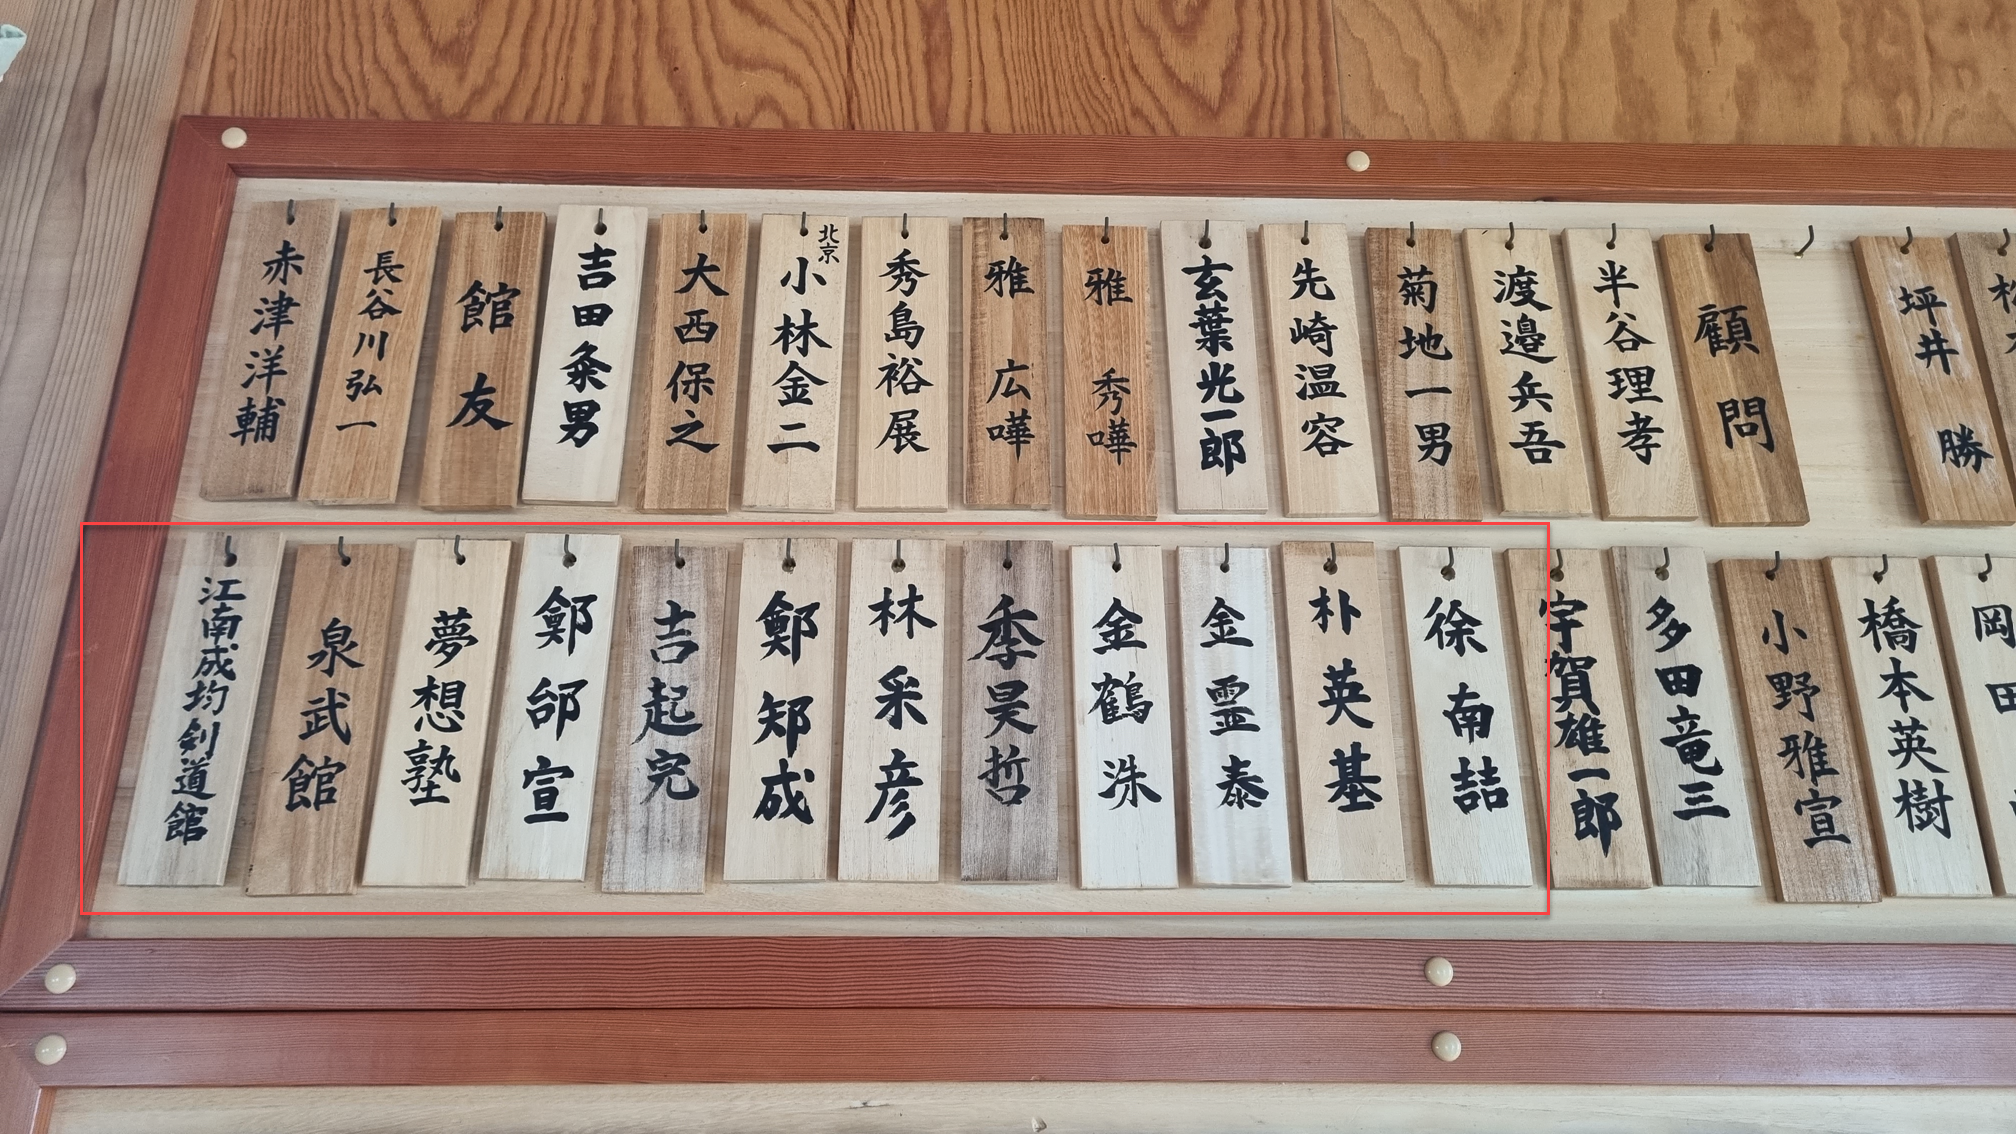 坪井勝
顧問
半谷理孝
渡邉兵吾
菊地一男
先崎温容
玄葉光一郎
雅秀嘩
雅広嘩
秀島裕展
北京
小林金二
大西保之
吉田粂男
館友
長谷川弘一
赤津洋輔
岡田
橋本英樹
小野雅宣
多田竜三
宇賀雄一郎
徐南喆
朴英基
金霊泰
金鶴洙
季昊哲
林采彦
鄭知成
吉起完
鄭邰宣
夢想塾
泉武館
江南成均剣道館